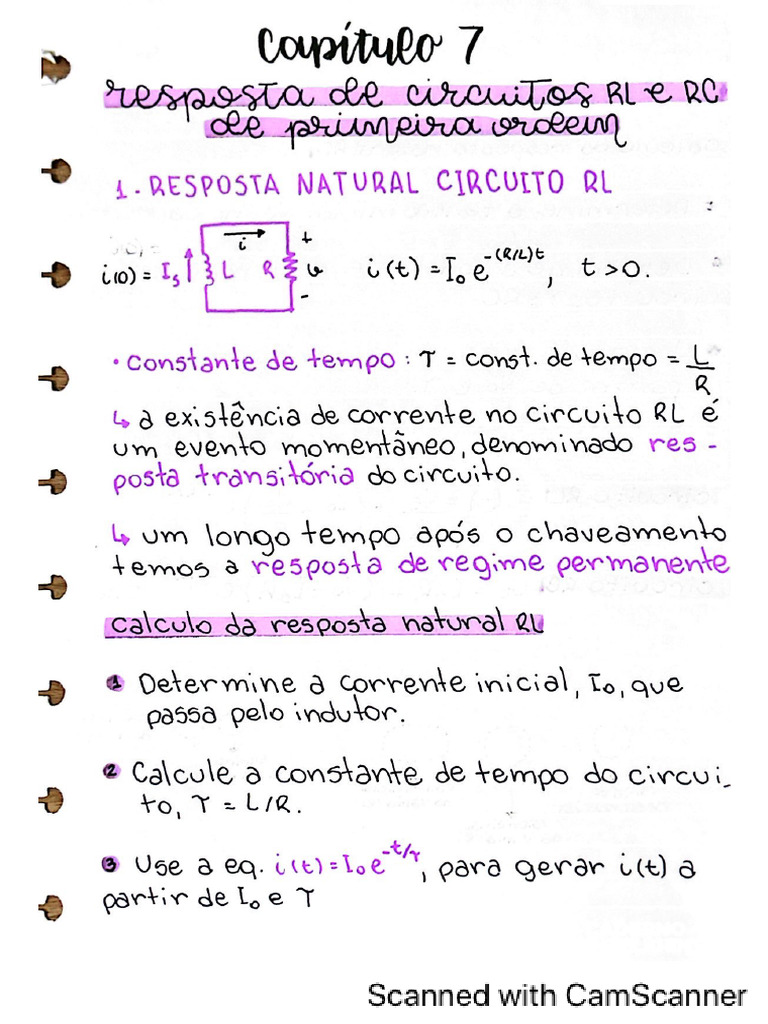 Capítulo 7
resposta de circuitos RL e RC
de primeira ordem
1. RESPOSTA NATURAL CIRCUITO RL
i(0) = Is L R i + v - i(t) = I₀ e^-(R/L)t, t > 0.
• constante de tempo: τ = const. de tempo = L/R
↳ a existência de corrente no circuito RL é
um evento momentâneo, denominado res-
posta transitória do circuito.
↳ um longo tempo após o chaveamento
temos a resposta de regime permanente
calculo da resposta natural RL
1 Determine a corrente inicial, I₀, que
passa pelo indutor.
2 Calcule a constante de tempo do circui-
to, τ = L/R.
3 Use a eq. i(t) = I₀ e^-t/τ, para gerar i(t) a
partir de I₀ e τ
Scanned with CamScanner